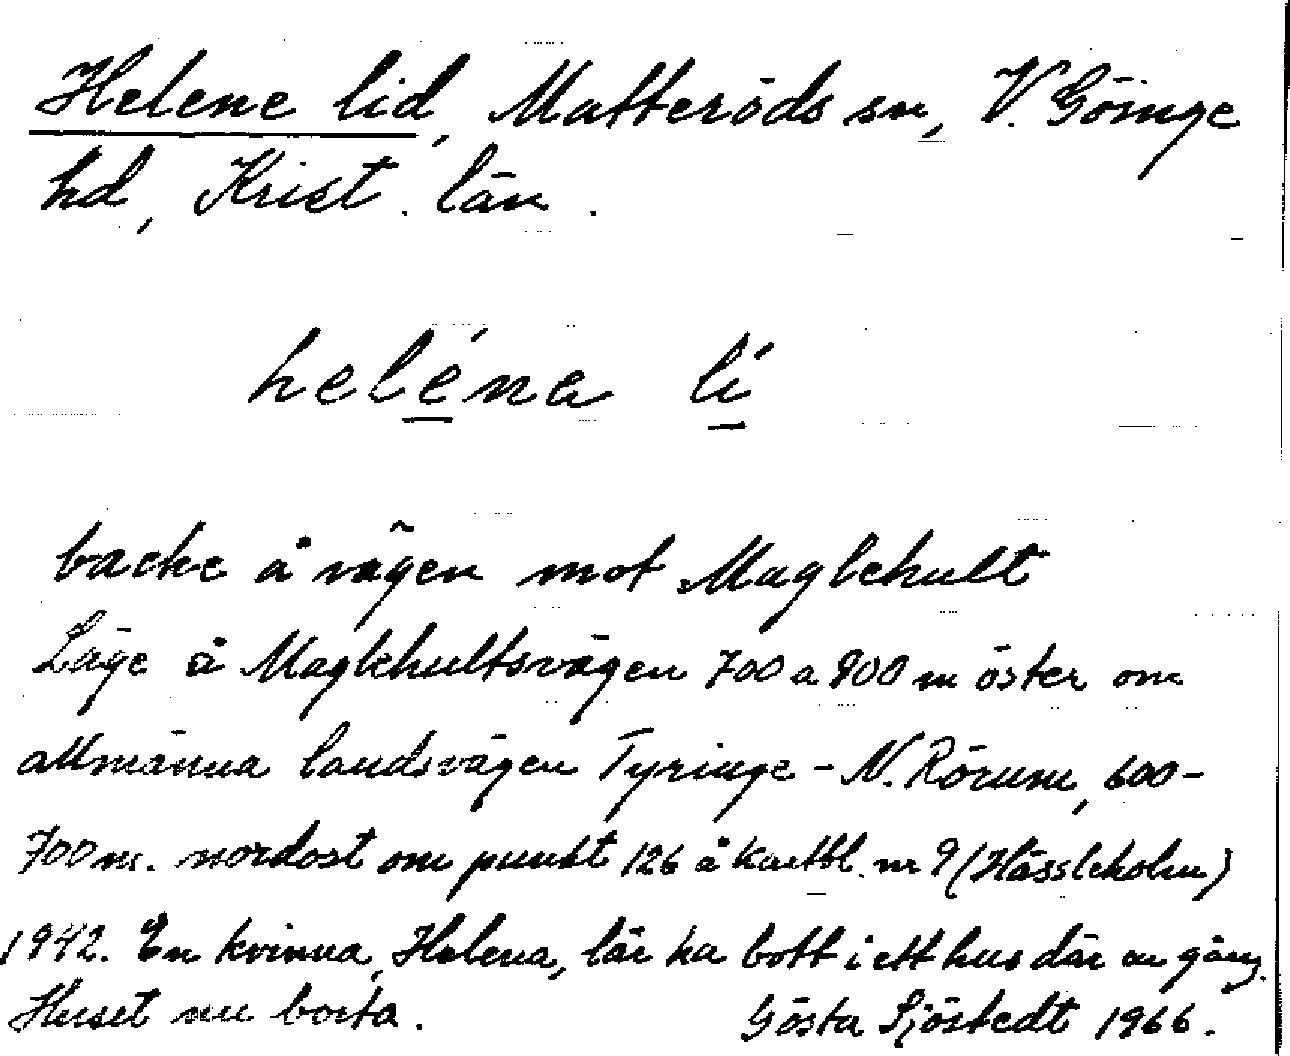 Helene lid, Matteröds sn, V. Göinge
hd, Krist. län.
heléna lí
backe å vägen mot Maglehult
Läge å Maglehultsvägen 700 a 800 m öster om
allmänna landsvägen Tyringe - N. Rörum, 600-
700 m. nordost om punkt 126 å kartbl. nr 9 (Hässleholm)
1942. En kvinna, Helena, lär ha bott i ett hus där en gång.
Huset nu borta. Gösta Sjöstedt 1966.